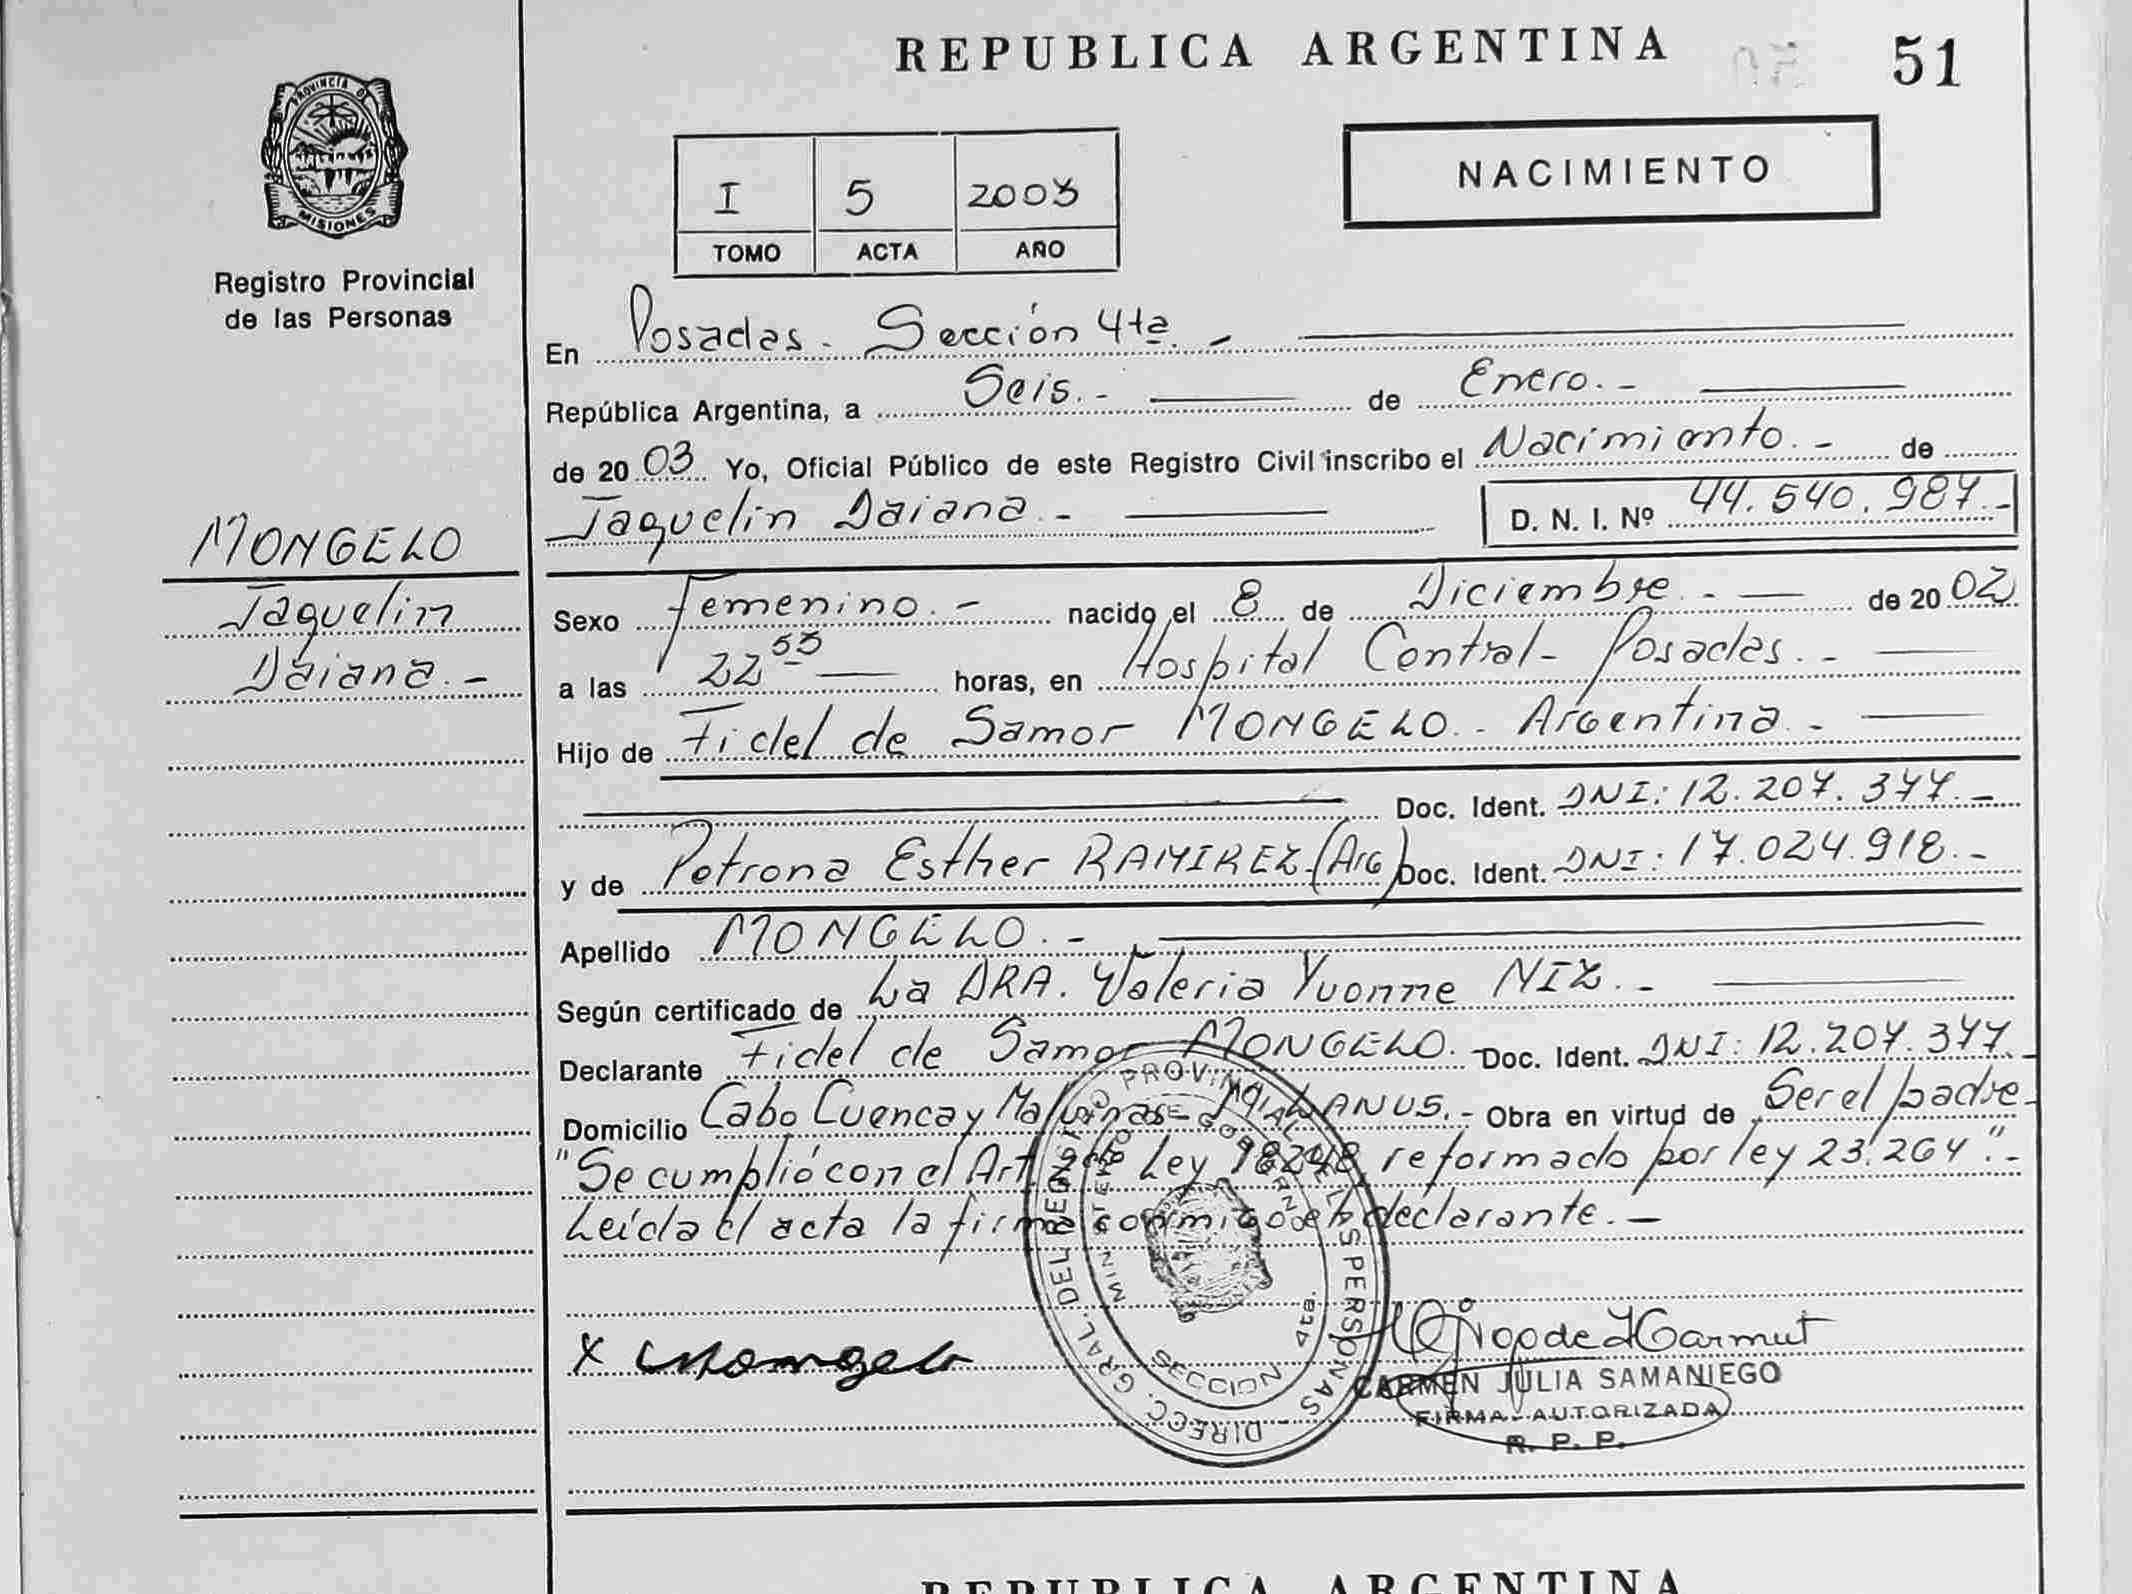 REPUBLICA ARGENTINA
51
PROVINCIA D
MISIONES
Registro Provincial
de las Personas
I 5 2003
TOMO ACTA AÑO
NACIMIENTO
En Posadas. Sección 4ta. -
República Argentina, a Seis. - de Enero. -
de 20 03 Yo, Oficial Público de este Registro Civil inscribo el Nacimiento. - de
Jaquelin Daiana. - D. N. I. Nº 44.540.987.-
MONGELO
Jaquelin
Daiana. -
Sexo Femenino. - nacido el 8 de Diciembre. - de 20 02
a las 22 55 horas, en Hospital Central - Posadas. -
Hijo de Fidel de Samor MONGELO. - Argentina. -
Doc. Ident. DNI: 12.207.377. -
y de Petrona Esther RAMIREZ (Arg) Doc. Ident. DNI: 17.024.918. -
Apellido MONGELO. -
Según certificado de La DRA. Valeria Yvonne NIZ. -
Declarante Fidel de Samor MONGELO. - Doc. Ident. DNI: 12.207.377. -
Domicilio Cabo Cuenca y Malvinas - LANUS. - Obra en virtud de Ser el padre -
"Se cumplió con el Art. Ley 18248 reformado por ley 23.264". -
Leída el acta la firma conmigo el declarante. -
DIRECC. GRAL. DEL REGISTRO PROVINCIAL DE LAS PERSONAS
MINISTERIO DE GOBIERNO
SECCION 4ta.
X Mongelo
CARMEN JULIA SAMANIEGO
FIRMA AUTORIZADA
R. P. P.
REPUBLICA ARGENTINA